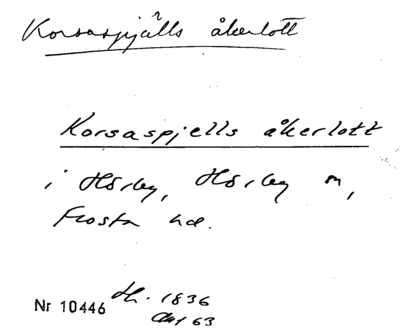 Korsaspjälls åkerlott
Korsaspjells åkerlott
i Hörby, Hörby sn,
Frosta hd.
Nr 10446 1836
63